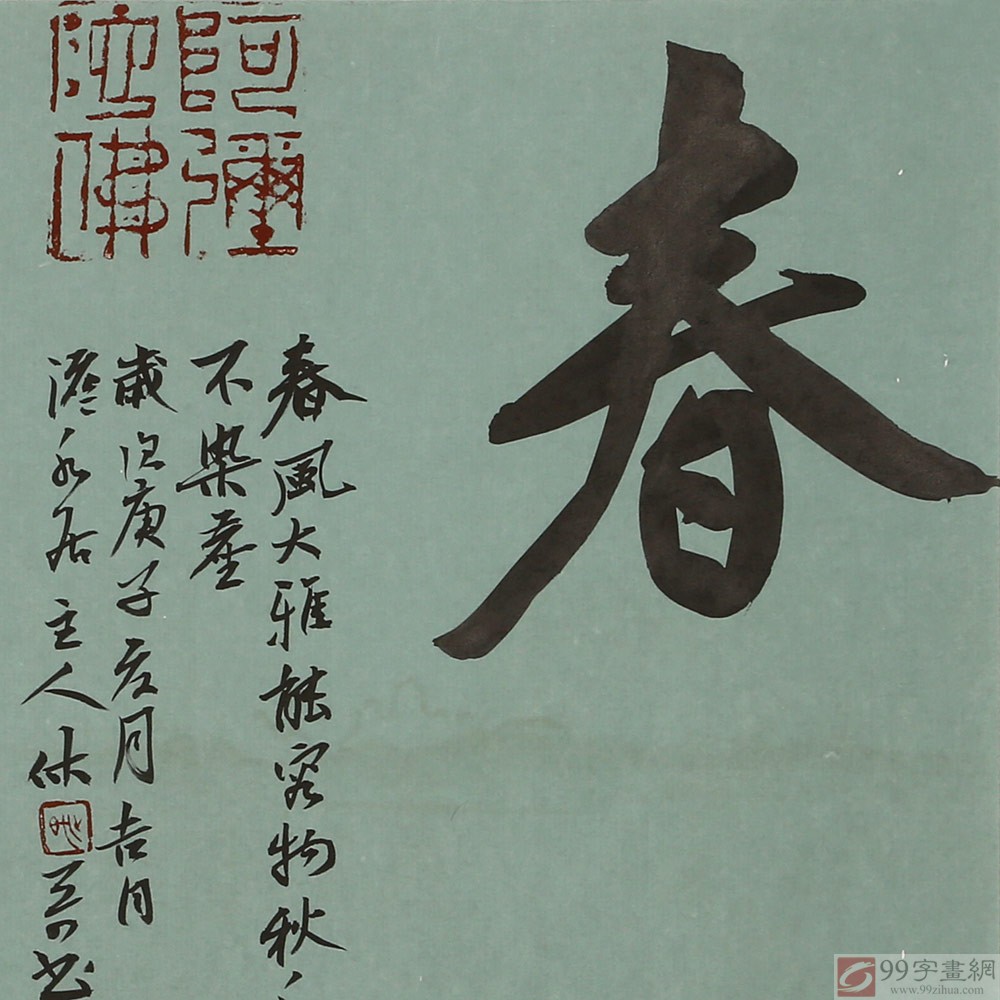 春
阿彌陀佛
春風大雅能容物秋
不染塵
歲次庚子夏月吉日
澹水居主人休
書
99字畫網
www.99zihua.com